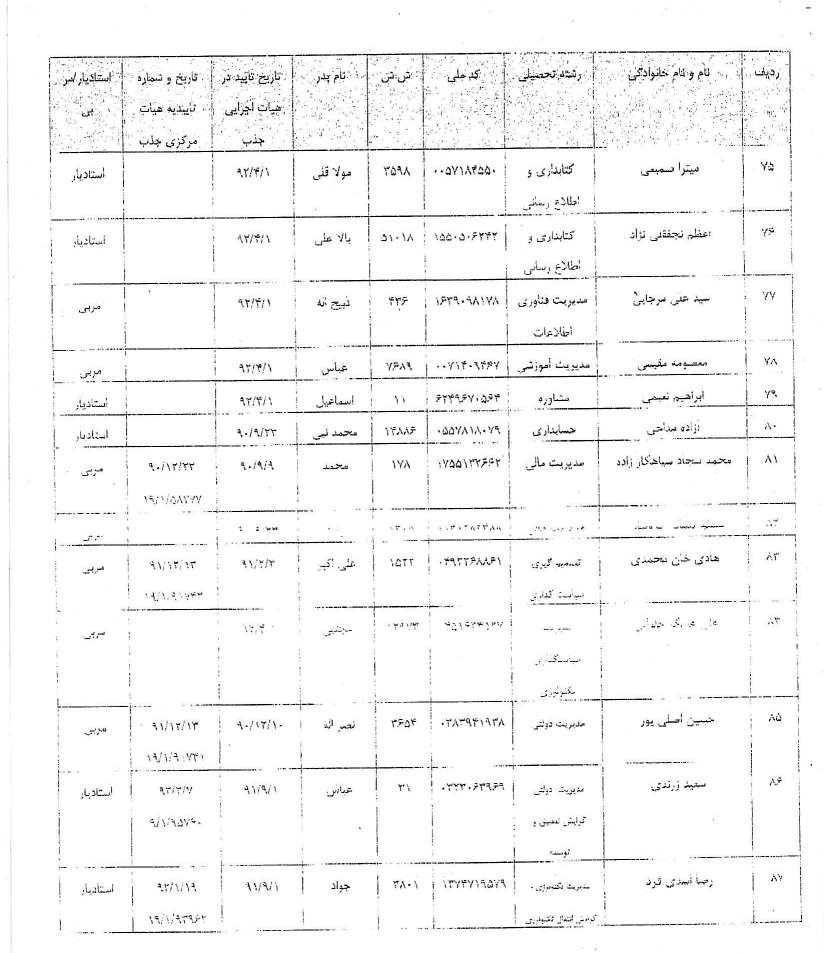 ردیف
نام و نام خانوادگی
رشته تحصیلی
کد ملی
ش.ش
نام پدر
تاریخ تایید در
هیات اجرایی
جذب
تاریخ و شماره
تاییدیه هیات
مرکزی جذب
استادیار/مر
بی
۷۵ میترا صمیعی کتابداری و ۰۰۵۷۱۸۴۵۵۰ ۳۵۹۸ مولا قلی ۹۲/۴/۱ استادیار
اطلاع رسانی
۷۶ اعظم نجفقلی نژاد کتابداری و ۱۵۵۰۵۰۶۲۴۲ ۵۱۰۱۸ بالا علی ۹۲/۴/۱ استادیار
اطلاع رسانی
۷۷ سید علی مرجایی مدیریت فناوری ۱۶۳۹۰۹۸۱۷۸ ۴۳۶ ذبیح اله ۹۲/۴/۱ مربی
اطلاعات
۷۸ معصومه مقیسی مدیریت آموزشی ۰۰۷۱۴۰۹۴۶۷ ۷۶۸۹ عباس ۹۲/۴/۱ مربی
۷۹ ابراهیم نعیمی مشاوره ۶۲۴۹۶۷۰۵۶۴ ۱۱ اسماعیل ۹۲/۴/۱ استادیار
۸۰ آزاده مداحی حسابداری ۰۵۵۷۸۱۸۰۷۹ ۱۴۸۸۶ محمد نبی ۹۰/۹/۲۳ استادیار
۸۱ محمد سجاد سیاهکار زاده مدیریت مالی ۱۷۵۵۱۳۲۶۶۲ ۱۷۸ محمد ۹۰/۹/۹ ۹۰/۱۲/۲۲ مربی
۱۹/۱/۵۸۲۷۷
مربی
۸۳ هادی خان محمدی تصمیم گیری ۰۴۹۳۲۶۸۸۶۱ ۱۵۲۲ علی اکبر ۹۱/۲/۳ ۹۱/۱۲/۱۳ مربی
سیاست گذاری
۸۳ مجتبی مربی
سیاستگذاری
تکنولوژی
۸۵ حسین اصلی پور مدیریت دولتی ۰۳۸۳۹۴۱۹۳۸ ۳۶۵۴ نصر اله ۹۰/۱۲/۱۰ ۹۱/۱۲/۱۳ مربی
۱۹/۱/۹۰۷۴۱
۸۶ سعید زرندی مدیریت دولتی ۰۳۲۳۰۶۳۹۶۹ ۳۱ عباس ۹۱/۹/۱ ۹۲/۲/۷ استادیار
گرایش تطبیقی و ۹/۱/۹۵۷۹۰
توسعه
۸۷ رضا اسدی فرد مدیریت تکنولوژی - ۱۳۷۴۷۱۹۵۷۹ ۳۸۰۱ جواد ۹۱/۹/۱ ۹۲/۱/۱۹ استادیار
گرایش انتقال تکنولوژی ۱۹/۱/۹۳۹۶۲